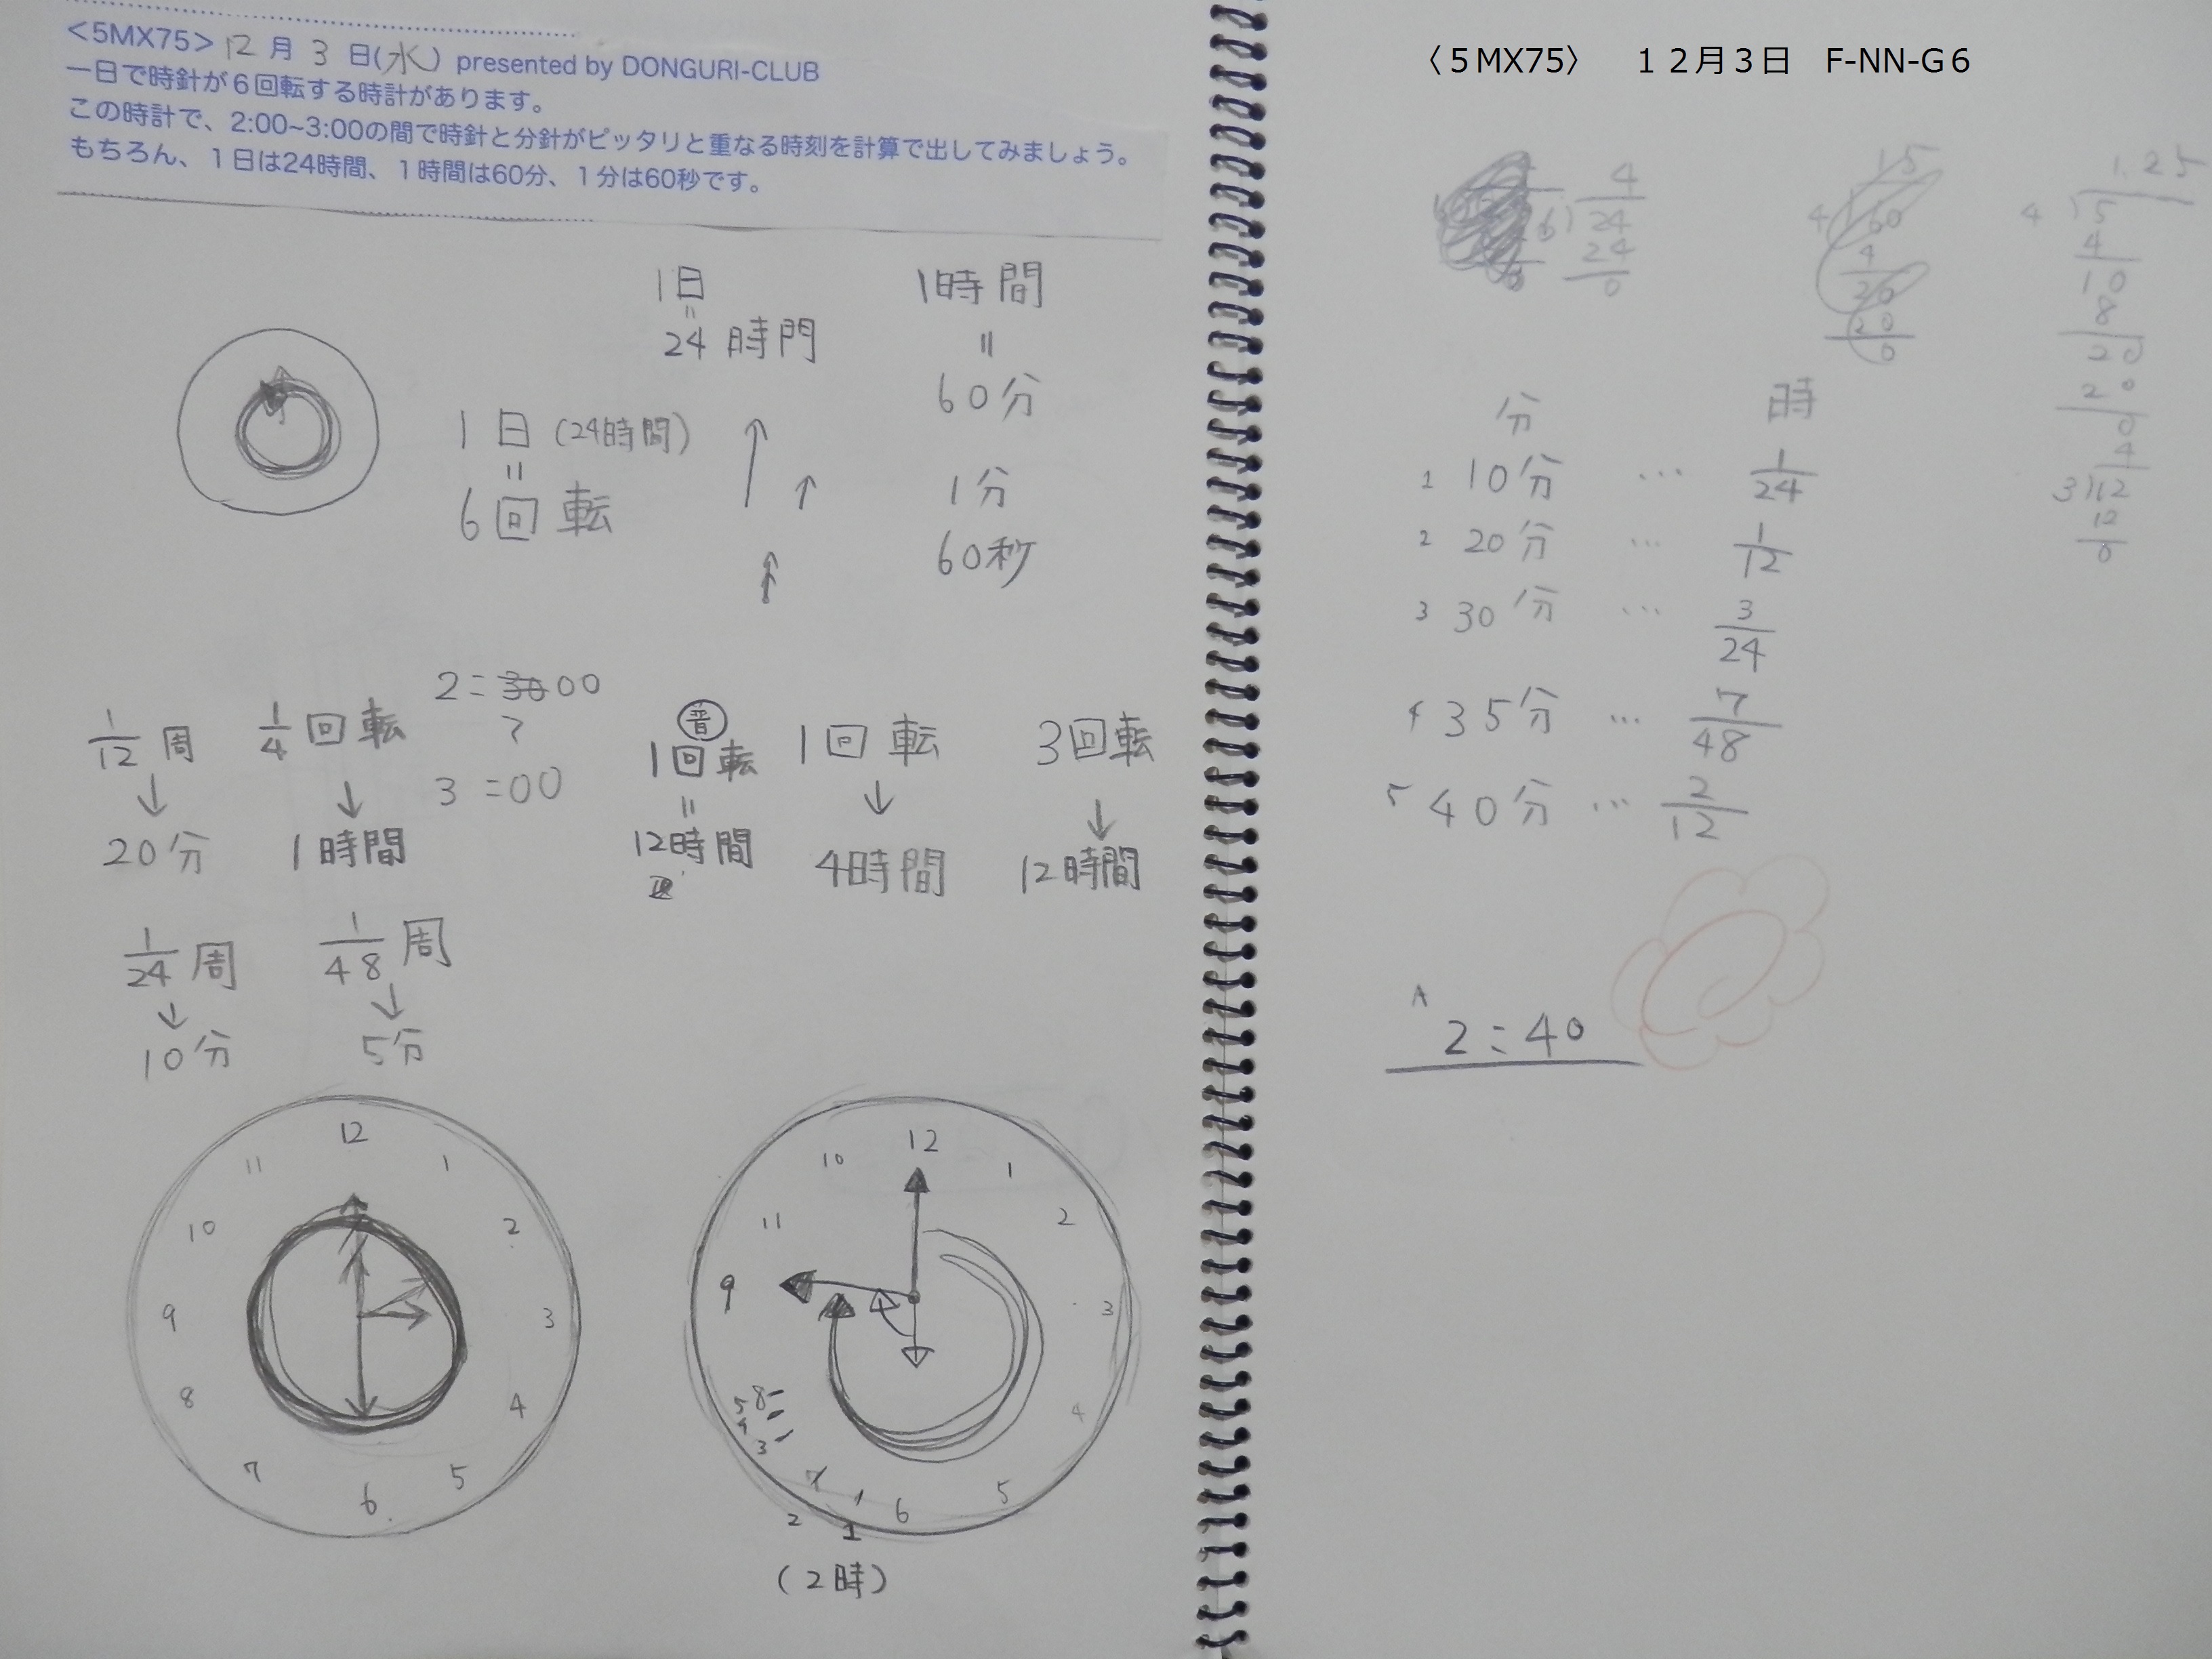 <5MX75> 12月 3 日(水) presented by DONGURI-CLUB
一日で時針が6回転する時計があります。
この時計で、2:00~3:00の間で時針と分針がピッタリと重なる時刻を計算で出してみましょう。
もちろん、１日は24時間、１時間は60分、１分は60秒です。
1日
=
24時間
1時間
=
60分
1分
60秒
1日(24時間)
=
6回転
1/12周
↓
20分
1/4回転
↓
1時間
2=00
3=00
普
1回転
=
12時間
1回転
↓
4時間
3回転
↓
12時間
1/24周
↓
10分
1/48周
↓
5分
12
11 1
10 2
9 3
8 4
7 5
6
12
10 1
11 2
9 3
8 4
7 5
6
5
4
3
2
1
(2時)
〈５MX75〉 １２月３日 F-NN-G６
4
6)24
24
0
15
4)60
4
20
20
0
1.25
4)5
4
10
8
20
20
0
4
3)12
12
0
分 時
1 10分 … 1/24
2 20分 … 1/12
3 30分 … 3/24
4 35分 … 7/48
5 40分 … 2/12
A 2:40